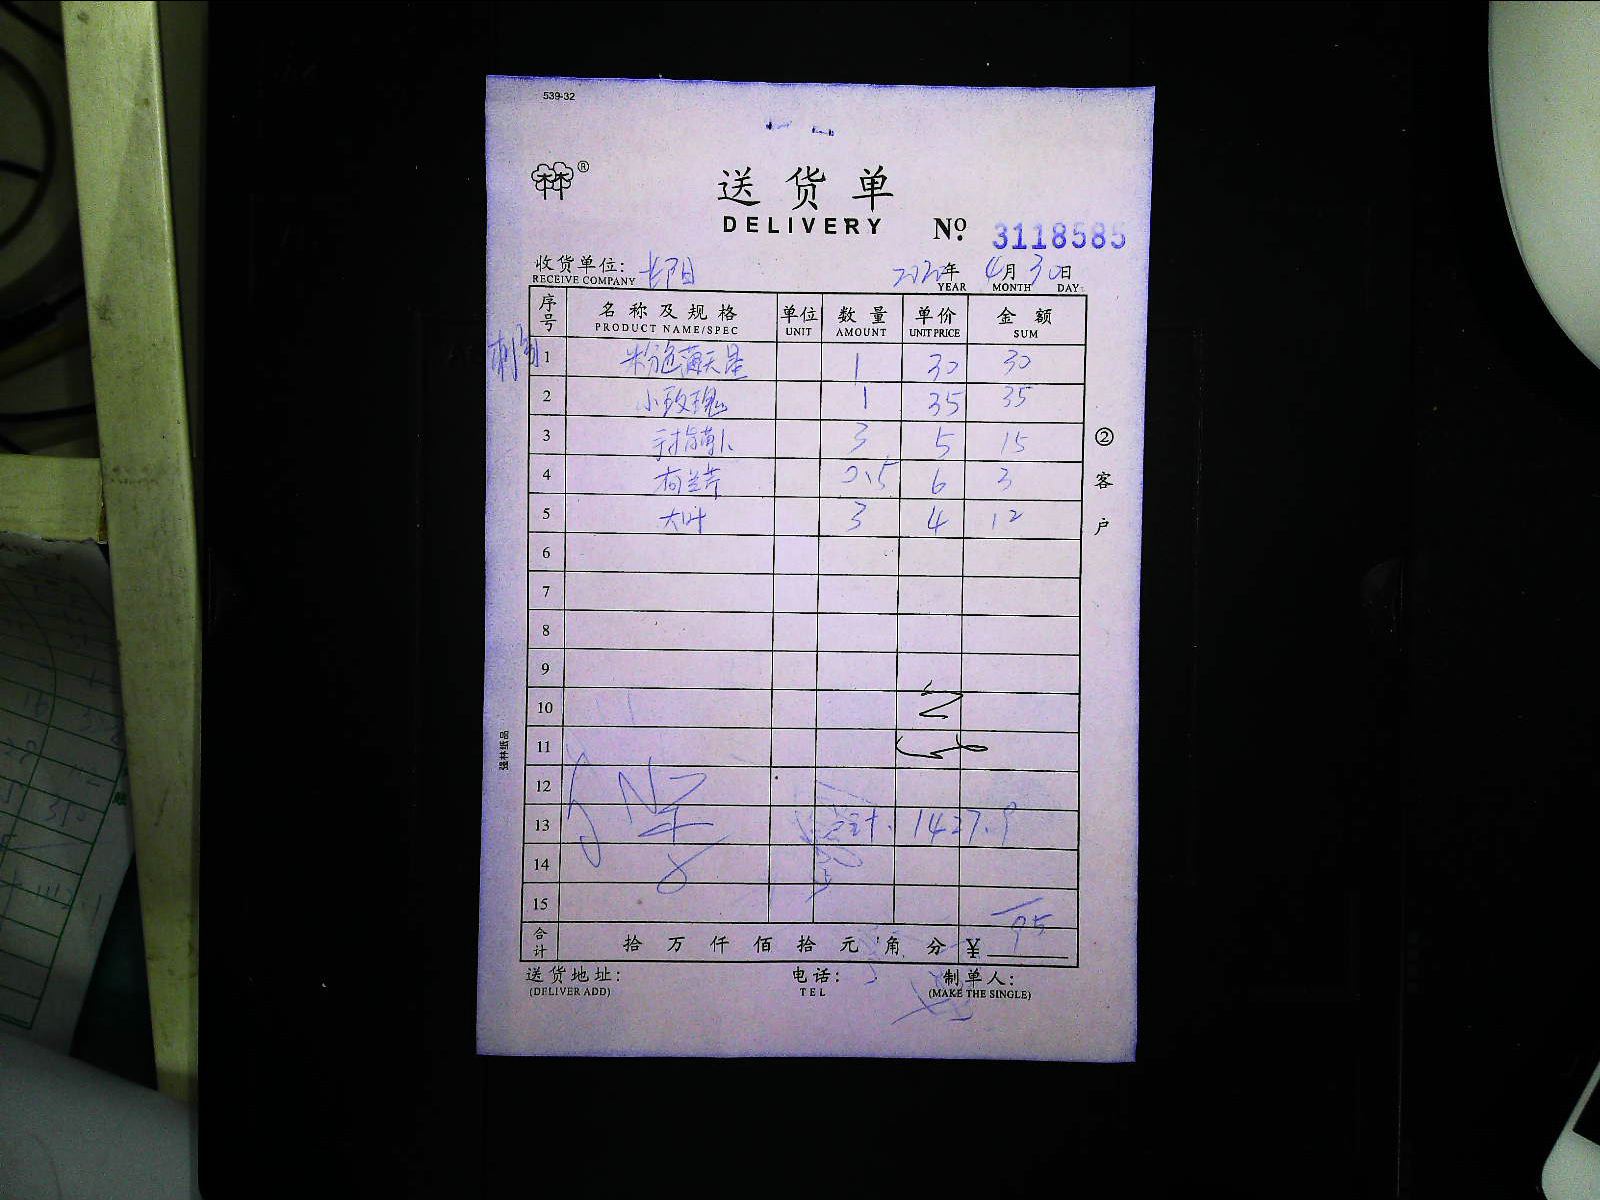 539-32
林®
送货单
DELIVERY No. 3118585
收货单位: 长阳 2020年 4月 30日
RECEIVE COMPANY YEAR MONTH DAY
序号 名称及规格 单位 数量 单价 金额
PRODUCT NAME/SPEC UNIT AMOUNT UNIT PRICE SUM
刺身 1 粉色满天星 1 30 30
2 小玫瑰 1 35 35
3 手指萝卜 3 5 15
4 荷兰芹 0.5 6 3
5 大叶 3 4 12
② 客户
6
7
8
9
10
11
12
13 合计. 1427.9
14
15
合计 拾 万 仟 佰 拾 元 角 分 ¥ 95
强林纸品
送货地址: 电话: 制单人:
(DELIVER ADD) TEL (MAKE THE SINGLE)